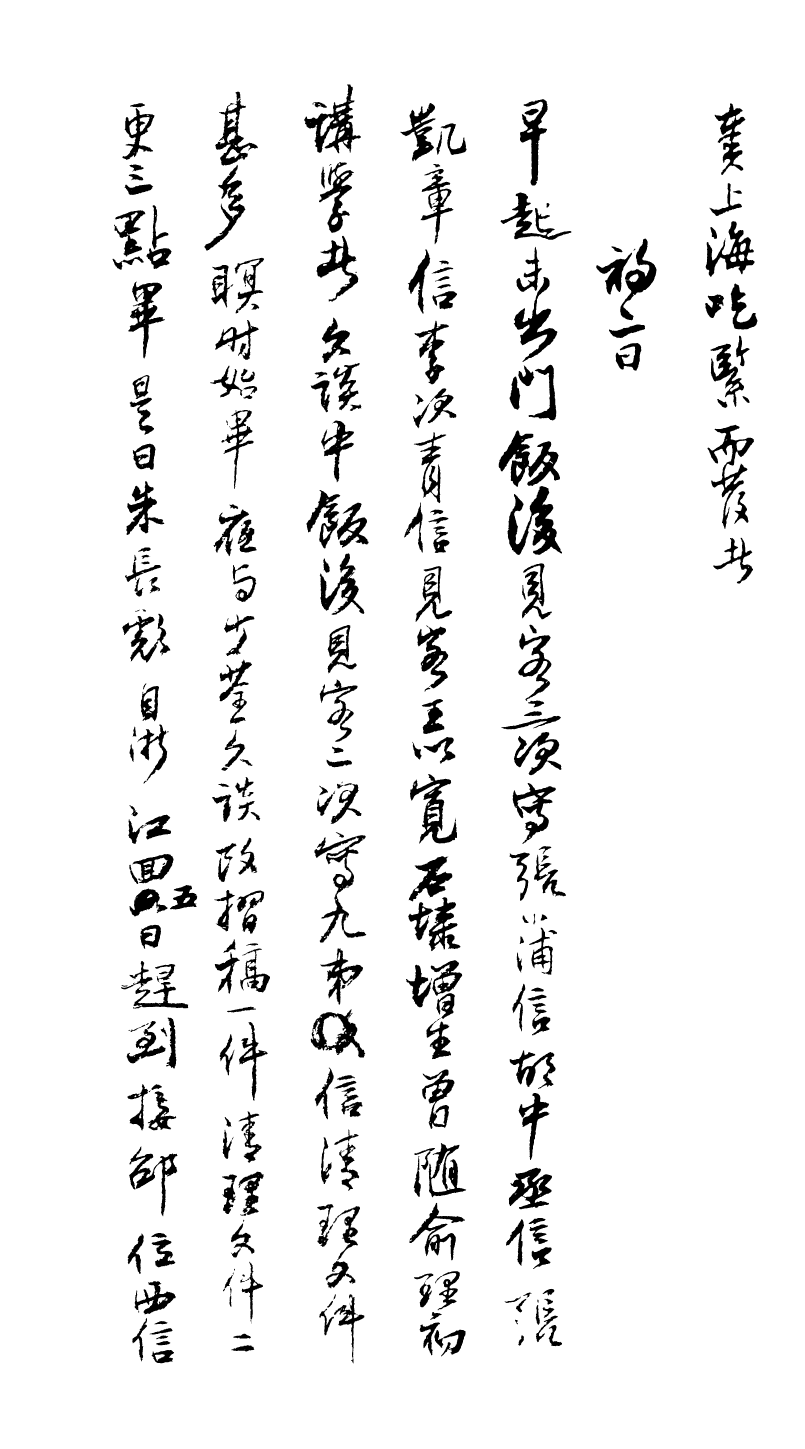 糞上海吃緊而發者
初二日
早起未出門飯後見客三次寫張小浦信胡中丞信張
凱章信李次青信見客王以寬石埭增生曾隨俞理初
講學者久談中飯後見客二次寫九弟信清理文件
甚多暝時始畢夜與少荃久談改摺稿一件清理文件二
更三點畢是日朱長彪自浙江回五日趕到接邵位西信